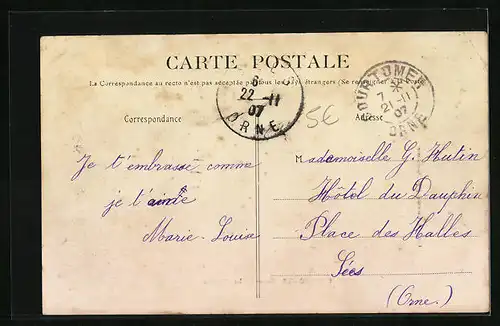 CARTE POSTALE
La Correspondance au recto n'est pas acceptée par tous les Pays étrangers (Se renseigner au Poste)
6
22 -11
07
ORNE
COURTOMER
7 *
21 -11
07
ORNE
5€
Correspondance
Adresse
Je t'embrasse comme
je t'aime
Marie-Louise
Mademoiselle G. Hutin
Hôtel du Dauphin
Place des Halles
Sées
(Orne.)